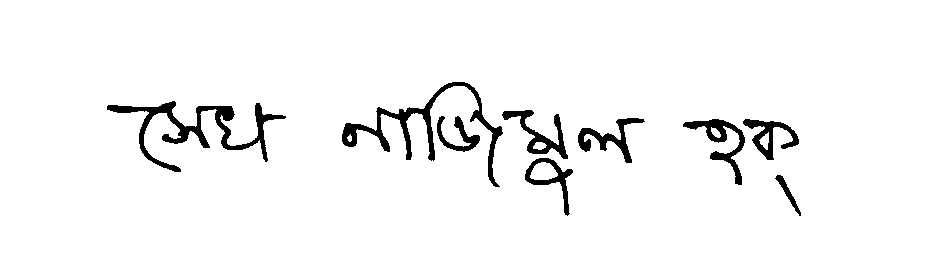 সেখ নাজিমুল হক্